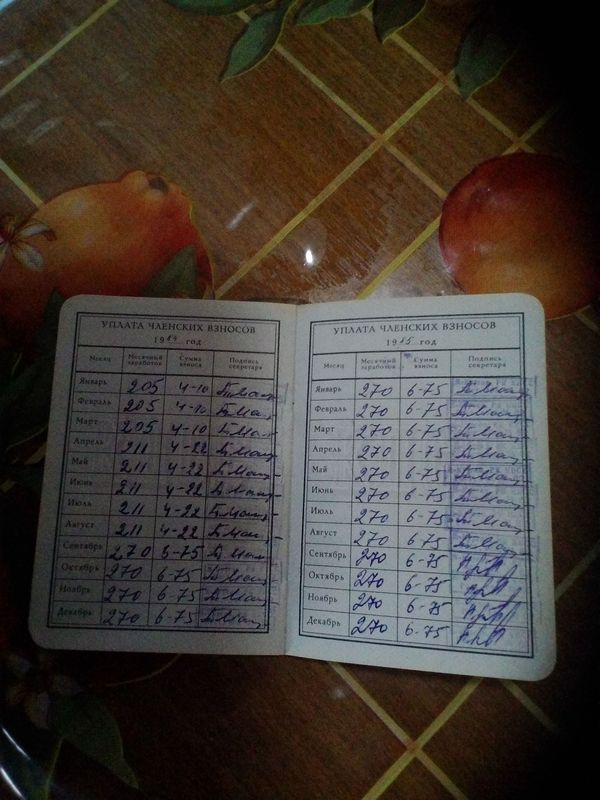 УПЛАТА ЧЛЕНСКИХ ВЗНОСОВ
19 год
Месяц Месячный заработок Сумма взноса Подпись секретаря
Январь 205 4-10
Февраль 205 4-10
Март 205 4-10
Апрель 211 4-22
Май 211 4-22
Июнь 211 4-22
Июль 211 4-22
Август 211 4-22
Сентябрь 270 6-75
Октябрь 270 6-75
Ноябрь 270 6-75
Декабрь 270 6-75
УПЛАТА ЧЛЕНСКИХ ВЗНОСОВ
19 год
Месяц Месячный заработок Сумма взноса Подпись секретаря
Январь 270 6-75
Февраль 270 6-75
Март 270 6-75
Апрель 270 6-75
Май 270 6-75
Июнь 270 6-75
Июль 270 6-75
Август 270 6-75
Сентябрь 270 6-75
Октябрь 270 6-75
Ноябрь 270 6-75
Декабрь 270 6-75